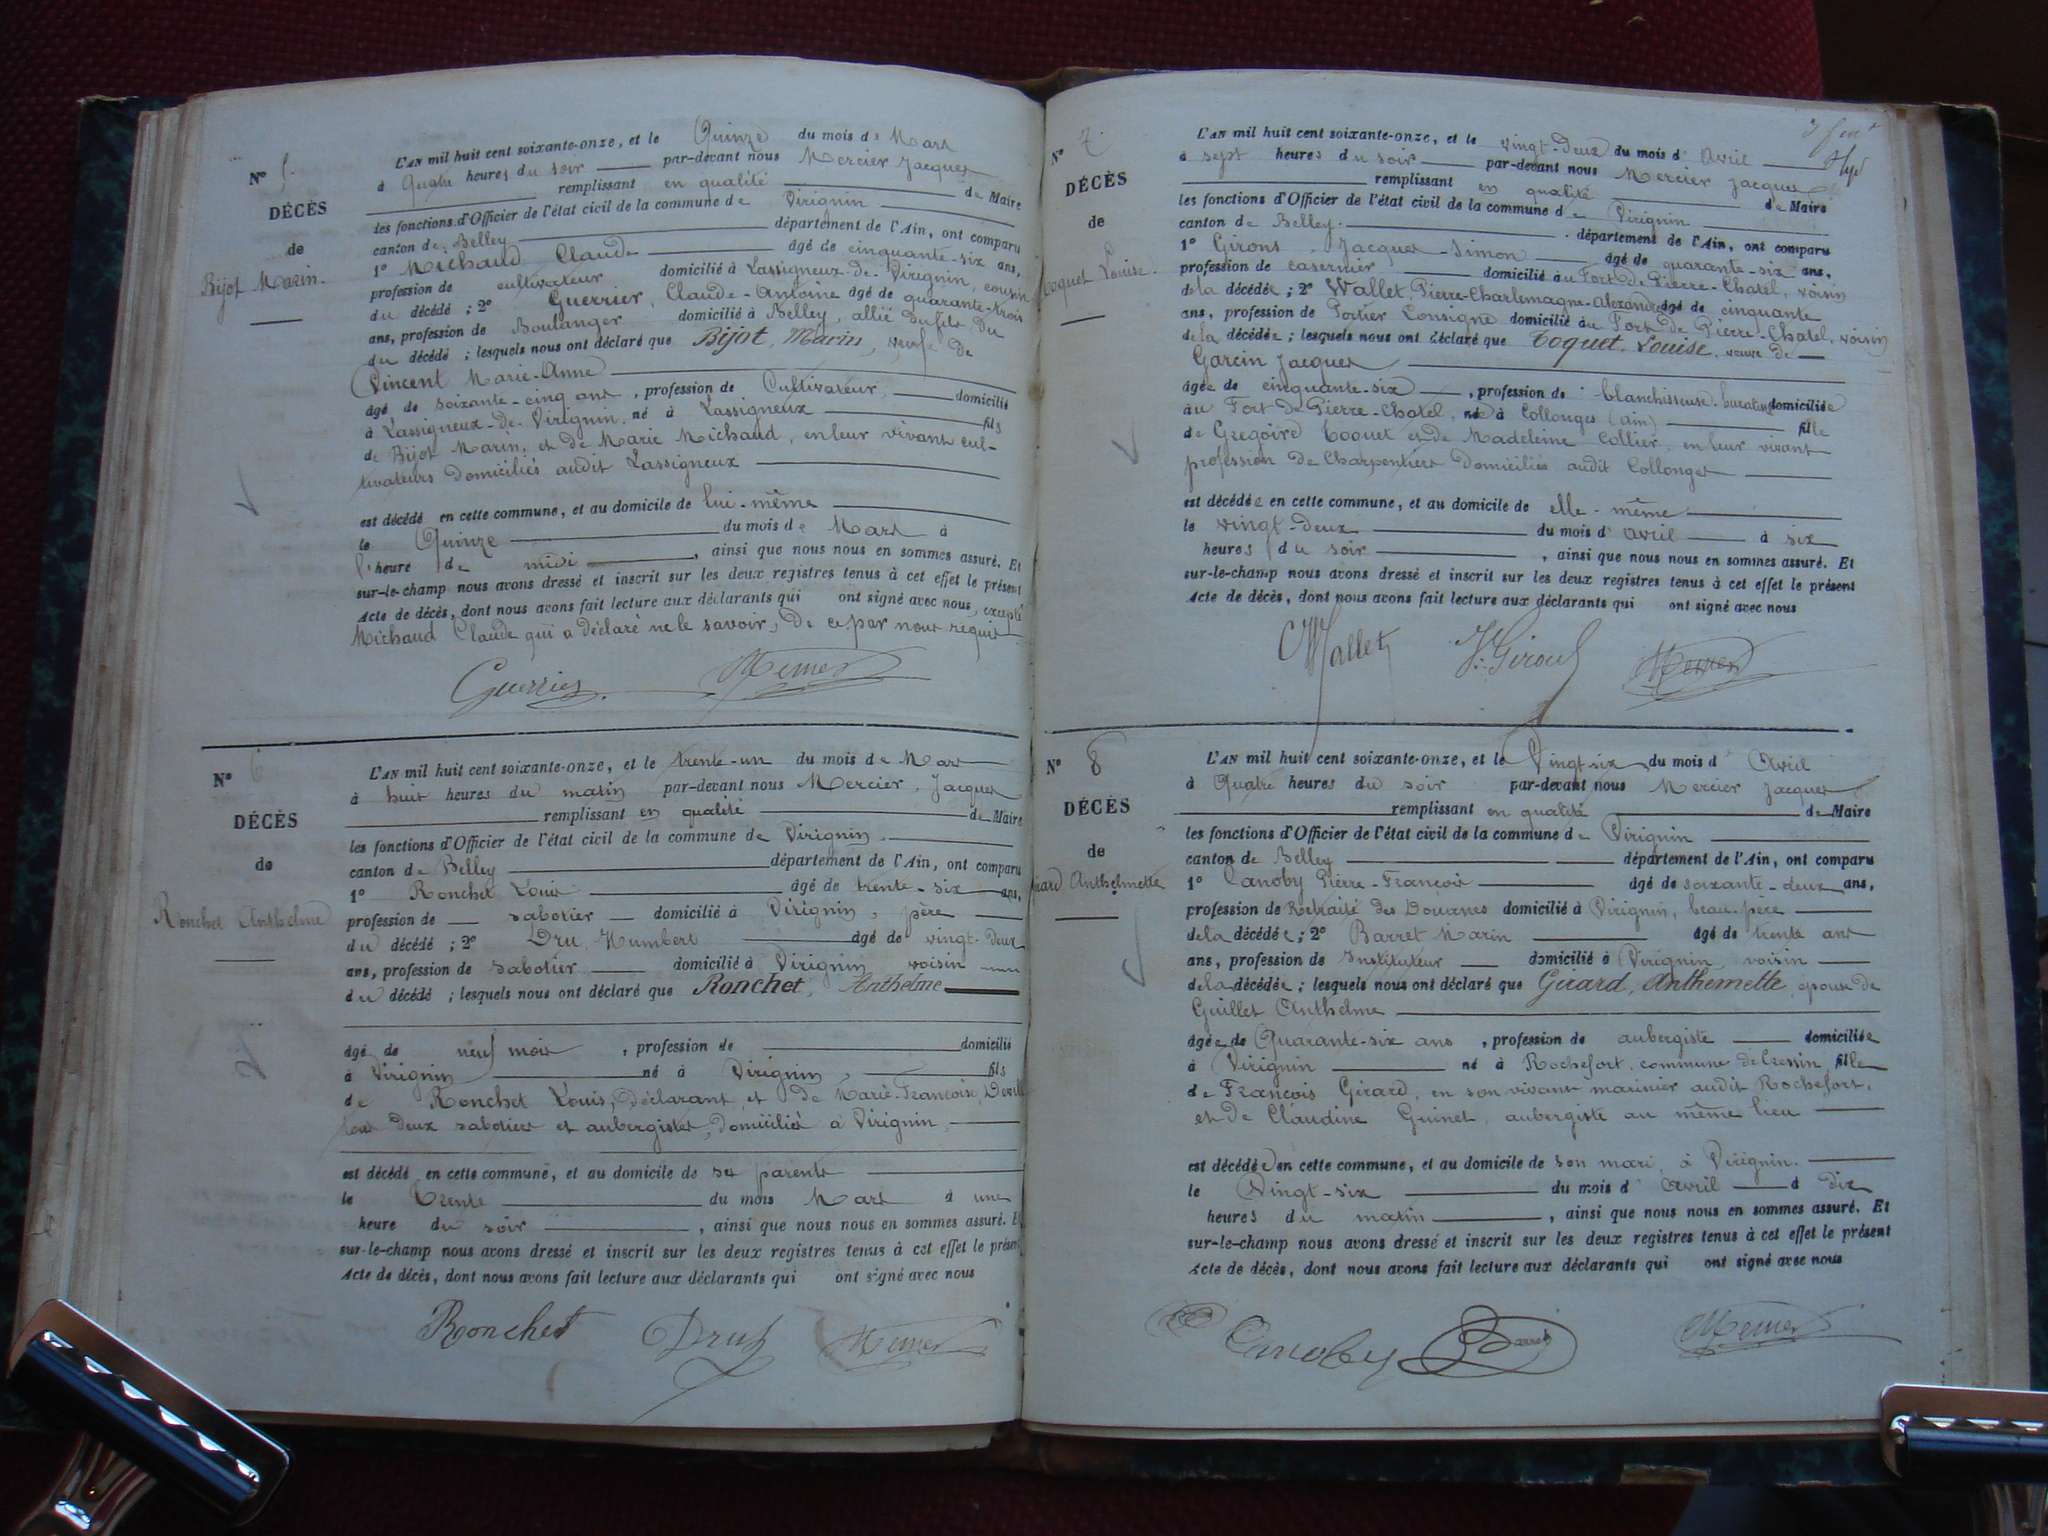 N° 5.
DÉCÈS
de
Bijot Marin.
L'AN mil huit cent soixante-onze, et le Quinze du mois de Mars
à Quatre heures du soir par-devant nous Mercier Jacques
remplissant en qualité de Maire
les fonctions d'Officier de l'état civil de la commune de Virignin
canton de Belley département de l'Ain, ont comparu
1° Michaud Claude âgé de cinquante-six ans,
profession de cultivateur domicilié à Lassigneux-de-Virignin, cousin
du décédé ; 2° Guerrier, Claude-Antoine âgé de quarante-trois
ans, profession de Boulanger domicilié à Belley, allié du fils du
du décédé ; lesquels nous ont déclaré que Bijot, Marin, veuf de
Vincent Marie-Anne
âgé de soixante-cinq ans, profession de Cultivateur, domicilié
à Lassigneux-de-Virignin, né à Lassigneux fils
de Bijot Marin, et de Marie Michaud, en leur vivant cul-
tivateurs domiciliés audit Lassigneux
est décédé en cette commune, et au domicile de lui-même
le Quinze du mois de Mars à
l'heure de midi, ainsi que nous nous en sommes assuré. Et
sur-le-champ nous avons dressé et inscrit sur les deux registres tenus à cet effet le présent
Acte de décès, dont nous avons fait lecture aux déclarants qui ont signé avec nous, excepté
Michaud Claude qui a déclaré ne le savoir, de ce par nous requis
Guerrier Mercier
N° 6
DÉCÈS
de
Ronchet Anthelme
L'AN mil huit cent soixante-onze, et le trente-un du mois de Mars
à huit heures du matin par-devant nous Mercier, Jacques
remplissant en qualité de Maire
les fonctions d'Officier de l'état civil de la commune de Virignin
canton de Belley département de l'Ain, ont comparu
1° Ronchet Louis âgé de trente-six ans,
profession de sabotier domicilié à Virignin, père
du décédé ; 2° Dru, Humbert âgé de vingt-deux
ans, profession de sabotier domicilié à Virignin voisin
du décédé ; lesquels nous ont déclaré que Ronchet, Anthelme
âgé de neuf mois, profession de domicilié
à Virignin né à Virignin, fils
de Ronchet Louis, déclarant et de Marie-Françoise,
deux sabotiers et aubergistes, domiciliés à Virignin,
est décédé en cette commune, et au domicile de ses parents
le trente du mois Mars à une
heure du soir, ainsi que nous nous en sommes assuré. Et
sur-le-champ nous avons dressé et inscrit sur les deux registres tenus à cet effet le présent
Acte de décès, dont nous avons fait lecture aux déclarants qui ont signé avec nous
Ronchet Dru Mercier
N° 7.
DÉCÈS
de
Toquet Louise.
L'AN mil huit cent soixante-onze, et le vingt-deux du mois d'Avril
à sept heures du soir par-devant nous Mercier Jacques
remplissant en qualité de Maire
les fonctions d'Officier de l'état civil de la commune de Virignin
canton de Belley. département de l'Ain, ont comparu
1° Girons Jacques-Simon âgé de quarante-six ans,
profession de casernier domicilié au Fort-de-Pierre-Chatel, voisin
de la décédée ; 2° Wallet, Pierre-Charlemagne-Alexandre âgé de cinquante
ans, profession de Portier Consigne domicilié au Fort de Pierre-Chatel, voisin
de la décédée ; lesquels nous ont déclaré que Toquet, Louise, veuve de
Garcin Jacques
âgée de cinquante-six, profession de blanchisseuse. domiciliée
au Fort de Pierre-Chatel, née à Collonges (ain) fille
de Gregoire Toquet et de Madeleine Collier, en leur vivant
profession de Charpentiers domiciliés audit Collonges
est décédée en cette commune, et au domicile de elle-même
le vingt-deux du mois d'avril à six
heures du soir, ainsi que nous nous en sommes assuré. Et
sur-le-champ nous avons dressé et inscrit sur les deux registres tenus à cet effet le présent
Acte de décès, dont nous avons fait lecture aux déclarants qui ont signé avec nous
Wallet Mercier
N° 8
DÉCÈS
de
Girard Anthelmette
L'AN mil huit cent soixante-onze, et le Vingt-six du mois d'Avril
à Quatre heures du soir par-devant nous Mercier Jacques
remplissant en qualité de Maire
les fonctions d'Officier de l'état civil de la commune de Virignin
canton de Belley département de l'Ain, ont comparu
1° Canoby Pierre-François âgé de soixante-deux ans,
profession de Retraité des Douanes domicilié à Virignin, beau-père
de la décédée ; 2° Barret Marin âgé de trente ans
ans, profession de Instituteur domicilié à Virignin, voisin
de la décédée ; lesquels nous ont déclaré que Girard, Anthemette, épouse de
Guillet Anthelme
âgée de Quarante-six ans, profession de aubergiste domiciliée
à Virignin né à Rochefort, commune de Cressin, fille
de François Girard, en son vivant marinier audit Rochefort,
et de Claudine Guinet, aubergiste au même lieu
est décédée en cette commune, et au domicile de son mari, à Virignin.
le Vingt-six du mois d'avril à dix
heures du matin, ainsi que nous nous en sommes assuré. Et
sur-le-champ nous avons dressé et inscrit sur les deux registres tenus à cet effet le présent
Acte de décès, dont nous avons fait lecture aux déclarants qui ont signé avec nous
Canoby Barret Mercier